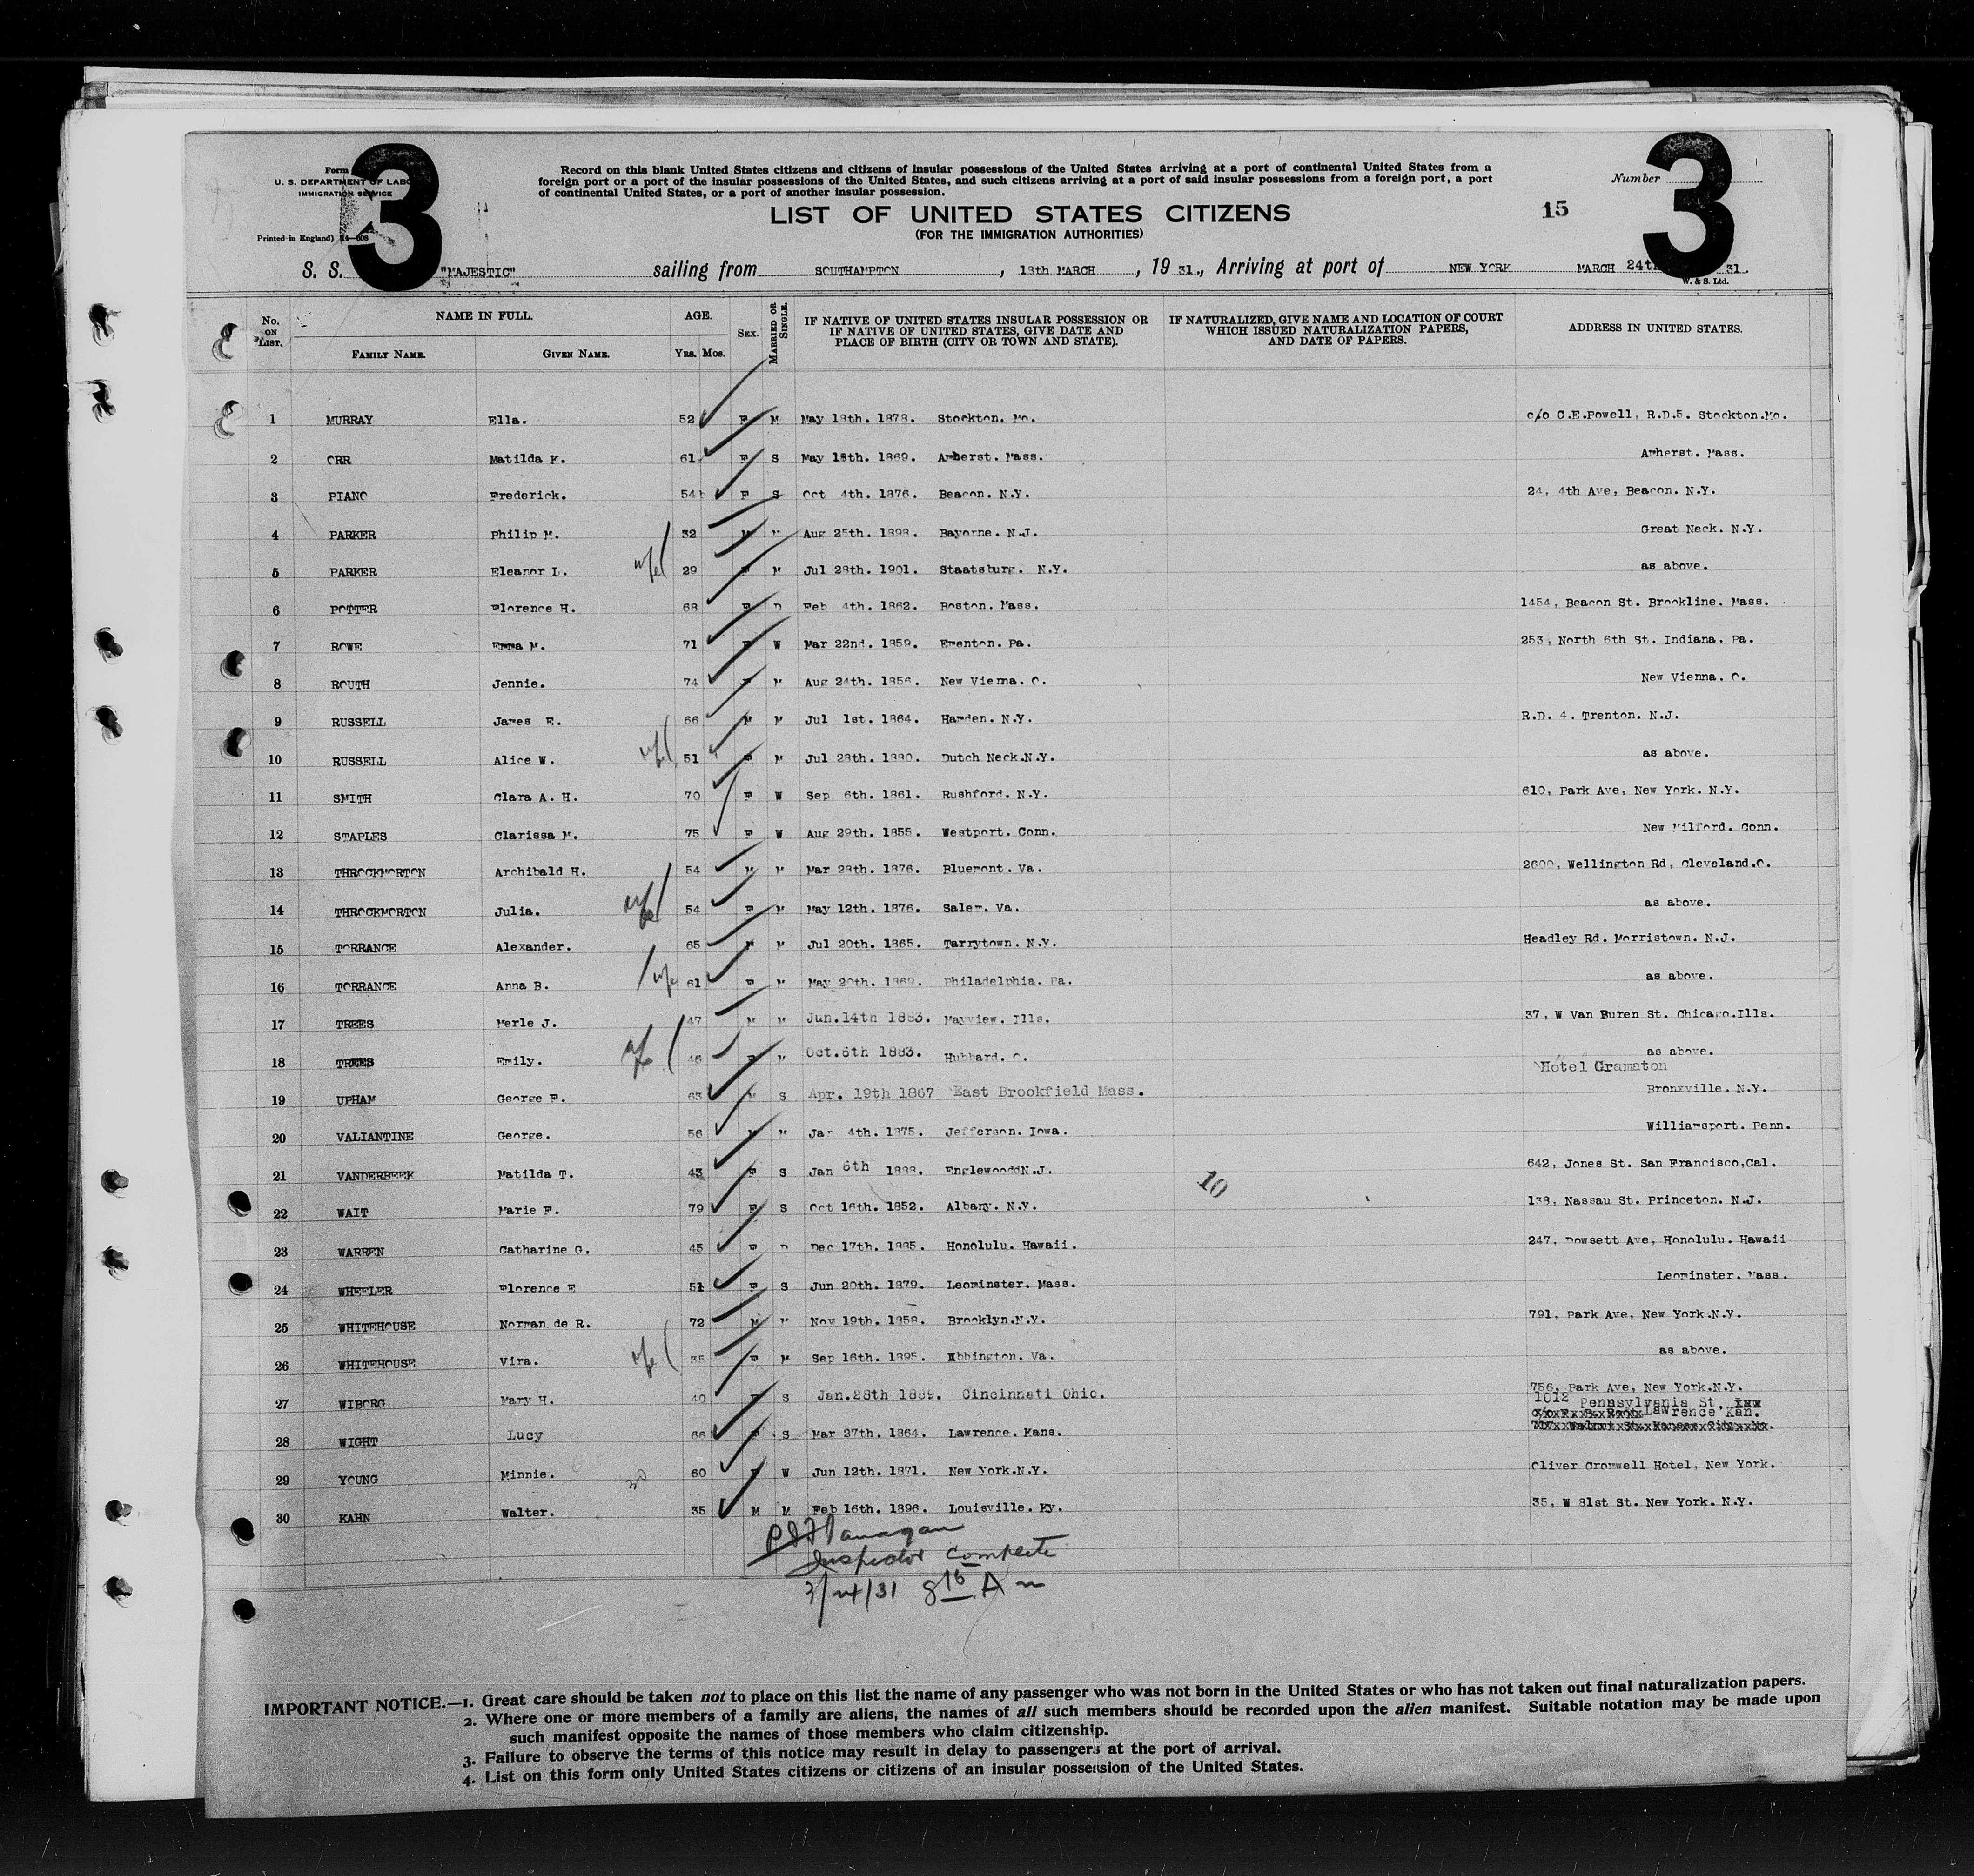 3
3
Form
U. S. DEPARTMENT OF LABO
IMMIGRATION SERVICE
Printed in England) 14—608
Record on this blank United States citizens and citizens of insular possessions of the United States arriving at a port of continental United States from a
foreign port or a port of the insular possessions of the United States, and such citizens arriving at a port of said insular possessions from a foreign port, a port
of continental United States, or a port of another insular possession.
Number
LIST OF UNITED STATES CITIZENS
15
(FOR THE IMMIGRATION AUTHORITIES)
S. S. "MAJESTIC" sailing from SOUTHAMPTON, 18th MARCH, 19 31., Arriving at port of NEW YORK MARCH 24th 31.
W. & S. Ltd.
No. ON LIST. NAME IN FULL. FAMILY NAME. GIVEN NAME. AGE. YRS. MOS. SEX. MARRIED OR SINGLE. IF NATIVE OF UNITED STATES INSULAR POSSESSION OR IF NATIVE OF UNITED STATES, GIVE DATE AND PLACE OF BIRTH (CITY OR TOWN AND STATE). IF NATURALIZED, GIVE NAME AND LOCATION OF COURT WHICH ISSUED NATURALIZATION PAPERS, AND DATE OF PAPERS. ADDRESS IN UNITED STATES.
1 MURRAY Ella. 52 F M May 18th. 1878. Stockton. Mo. c/o C.E.Powell, R.D.5. Stockton.Mo.
2 ORR Matilda F. 61 F S May 18th. 1869. Amherst. Mass. Amherst. Mass.
3 PIANO Frederick. 54 F S Oct 4th. 1876. Beacon. N.Y. 24, 4th Ave, Beacon. N.Y.
4 PARKER Philip M. 32 M M Aug 25th. 1898. Bayonne. N.J. Great Neck. N.Y.
5 PARKER Eleanor L. wife 29 F M Jul 28th. 1901. Staatsburg. N.Y. as above.
6 POTTER Florence H. 68 F D Feb 4th. 1862. Boston. Mass. 1454, Beacon St. Brookline. Mass.
7 ROWE Emma M. 71 F W Mar 22nd. 1859. Ementon. Pa. 253, North 6th St. Indiana. Pa.
8 ROUTH Jennie. 74 F M Aug 24th. 1856. New Vienna. O. New Vienna. O.
9 RUSSELL James E. 66 M M Jul 1st. 1864. Hamden. N.Y. R.D. 4. Trenton. N.J.
10 RUSSELL Alice W. wife 51 F M Jul 28th. 1880. Dutch Neck.N.Y. as above.
11 SMITH Clara A. H. 70 F W Sep 6th. 1861. Rushford. N.Y. 610, Park Ave, New York. N.Y.
12 STAPLES Clarissa M. 75 F W Aug 29th. 1855. Westport. Conn. New Milford. Conn.
13 THROCKMORTON Archibald H. 54 M M Mar 28th. 1876. Bluemont. Va. 2600, Wellington Rd, Cleveland.O.
14 THROCKMORTON Julia. wife 54 F M May 12th. 1876. Salem. Va. as above.
15 TORRANCE Alexander. 65 M M Jul 20th. 1865. Tarrytown. N.Y. Headley Rd. Morristown. N.J.
16 TORRANCE Anna B. wife 61 F M May 20th. 1869. Philadelphia. Pa. as above.
17 TREES Merle J. 47 M M Jun.14th 1883. Mayview. Ills. 37, W Van Buren St. Chicago.Ills.
18 TREES Emily. wife 46 F M Oct.6th 1883. Hubbard. O. as above.
Hotel Gramaton
19 UPHAM George F. 63 M S Apr. 19th 1867 East Brookfield Mass. Bronxville. N.Y.
20 VALIANTINE George. 56 M M Jan 4th. 1875. Jefferson. Iowa. Williamsport. Penn.
21 VANDERBEEK Matilda T. 43 F S Jan 6th 1888. EnglewooddN.J. 10 642, Jones St. San Francisco,Cal.
22 WAIT Marie F. 79 F S Oct 16th. 1852. Albany. N.Y. 138, Nassau St. Princeton. N.J.
23 WARREN Catharine G. 45 F D Dec 17th. 1885. Honolulu. Hawaii. 247, Dowsett Ave, Honolulu. Hawaii
24 WHEELER Florence E 51 F S Jun 20th. 1879. Leominster. Mass. Leominster. Mass.
25 WHITEHOUSE Norman de R. 72 M M Nov 19th. 1858. Brooklyn.N.Y. 791, Park Ave, New York.N.Y.
26 WHITEHOUSE Vira. wife 35 F M Sep 16th. 1895. Abbington. Va. as above.
27 WIBORG Mary H. 40 F S Jan.28th 1889. Cincinnati Ohio. 756, Park Ave, New York.N.Y.
1012 Pennsylvania St.
Lawrence Kan.
28 WIGHT Lucy 66 F S Mar 27th. 1864. Lawrence. Kans.
29 YOUNG Minnie. 60 F W Jun 12th. 1871. New York.N.Y. Oliver Cromwell Hotel, New York.
30 KAHN Walter. 35 M M Feb 16th. 1896. Louisville. Ky. 35, W 81st St. New York. N.Y.
P J Flanagan
Inspector Complete
3/24/31 8 15 Am
IMPORTANT NOTICE.—1. Great care should be taken not to place on this list the name of any passenger who was not born in the United States or who has not taken out final naturalization papers.
2. Where one or more members of a family are aliens, the names of all such members should be recorded upon the alien manifest. Suitable notation may be made upon
such manifest opposite the names of those members who claim citizenship.
3. Failure to observe the terms of this notice may result in delay to passengers at the port of arrival.
4. List on this form only United States citizens or citizens of an insular possession of the United States.